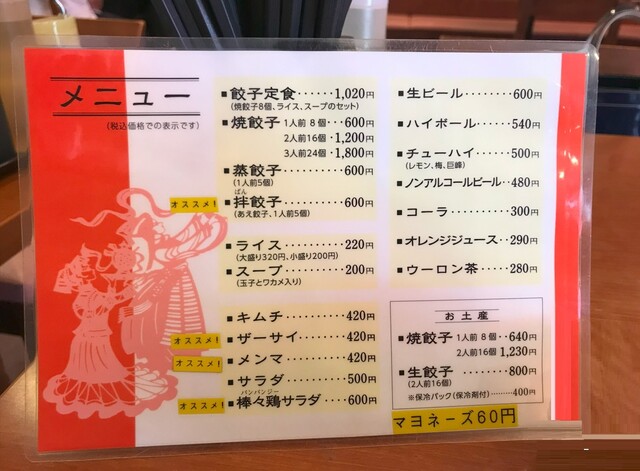 メニュー
(税込価格での表示です)
■餃子定食‥‥‥1,020円
(焼餃子8個、ライス、スープのセット)
■焼餃子 1人前 8個‥‥600円
2人前16個・1,200円
3人前24個・1,800円
■蒸餃子‥‥‥‥‥600円
(1人前5個)
オススメ!
ばん
■拌餃子‥‥‥‥‥600円
(あえ餃子、1人前5個)
■ライス‥‥‥‥‥220円
(大盛り320円、小盛り200円)
■スープ‥‥‥‥‥200円
(玉子とワカメ入り)
■キムチ‥‥‥‥‥420円
オススメ!
■ザーサイ‥‥‥‥420円
オススメ!
■メンマ‥‥‥‥‥420円
■サラダ‥‥‥‥‥500円
オススメ!
バンバンジー
■棒々鶏サラダ‥‥600円
■生ビール‥‥‥‥600円
■ハイボール‥‥‥540円
■チューハイ‥‥‥500円
(レモン、梅、巨峰)
■ノンアルコールビール‥480円
■コーラ‥‥‥‥‥300円
■オレンジジュース‥290円
■ウーロン茶‥‥‥280円
お土産
■焼餃子 1人前 8個‥640円
2人前16個 1,230円
■生餃子‥‥‥‥‥800円
(2人前16個)
※保冷パック(保冷剤付)‥‥‥‥400円
マヨネーズ60円